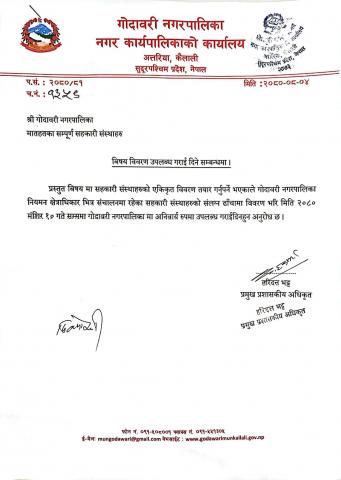 गोदावरी नगरपालिका
नगर कार्यपालिकाको कार्यालय
अत्तरिया, कैलाली
सुदूरपश्चिम प्रदेश, नेपाल
प.सं.: २०८०/८१
च.नं.:
मिति : २०८०-०८-०४
श्री गोदावरी नगरपालिका
मातहतका सम्पूर्ण सहकारी संस्थाहरु
विषय विवरण उपलब्ध गराई दिने सम्बन्धमा।
प्रस्तुत विषय मा सहकारी संस्थाहरुको एकिकृत विवरण तयार गर्नुपर्ने भएकाले गोदावरी नगरपालिका
नियमन क्षेत्राधिकार भित्र संचालनमा रहेका सहकारी संस्थाहरुको संलग्न ढाँचामा विवरण भरि मिति २०८०
मंसिर १० गते सम्ममा गोदावरी नगरपालिका मा अनिवार्य रुपमा उपलब्ध गराईदिनहुन अनुरोध छ।
हरिदत्त भट्ट
प्रमुख प्रशासकीय अधिकृत
हरिदत्त भट्ट
प्रमुख प्रशासकीय अधिकृत
ई-मेल: mungodawari@gmail.com वेभसाईट : www.godawarimunkailali.gov.np